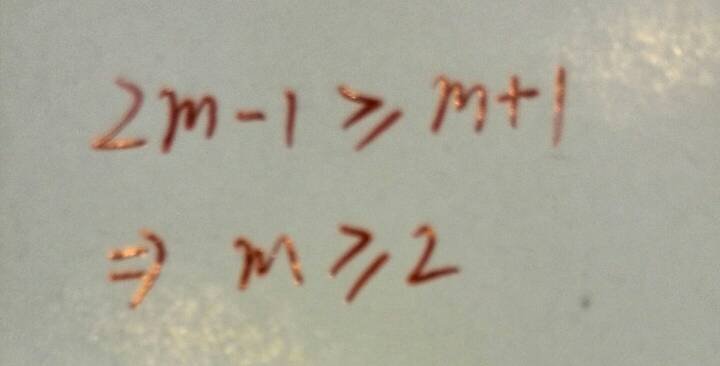 2m-1⩾m+1
⇒ m⩾2